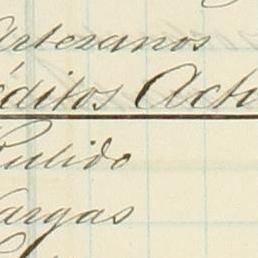 artezanos
éditos Act
Pulido
argas